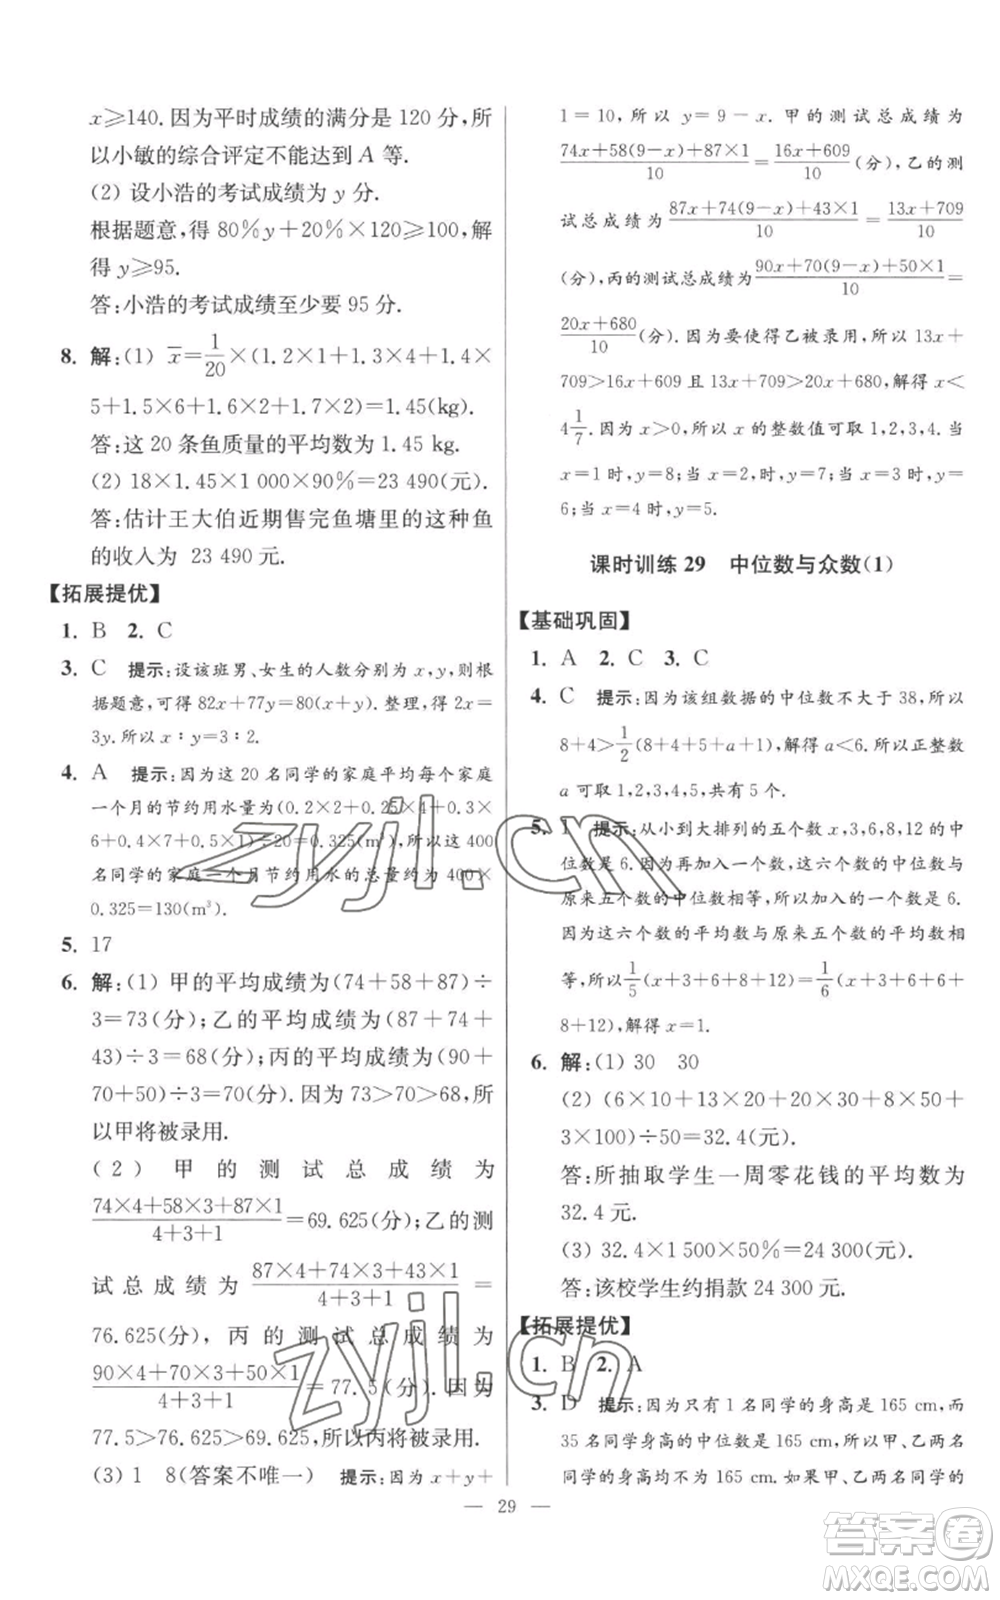 x≥140. 因为平时成绩的满分是 120 分，所
以小敏的综合评定不能达到 A 等.
(2) 设小浩的考试成绩为 y 分.
根据题意，得 80%y＋20%×120≥100，解
得 y≥95.
答：小浩的考试成绩至少要 95 分.
8. 解：(1) x̄＝1/20×(1.2×1＋1.3×4＋1.4×
5＋1.5×6＋1.6×2＋1.7×2)＝1.45(kg).
答：这 20 条鱼质量的平均数为 1.45 kg.
(2) 18×1.45×1 000×90%＝23 490(元).
答：估计王大伯近期售完鱼塘里的这种鱼
的收入为 23 490 元.
【拓展提优】
1. B 2. C
3. C 提示：设该班男、女生的人数分别为 x，y，则根
据题意，可得 82x＋77y＝80(x＋y). 整理，得 2x＝
3y. 所以 x∶y＝3∶2.
4. A 提示：因为这 20 名同学的家庭平均每个家庭
一个月的节约用水量为(0.2×2＋0.25×4＋0.3×
6＋0.4×7＋0.5×1)÷20＝0.325(m³)，所以这 400
名同学的家庭一个月节约用水的总量约为 400×
0.325＝130(m³).
5. 17
6. 解：(1) 甲的平均成绩为(74＋58＋87)÷
3＝73(分)；乙的平均成绩为(87＋74＋
43)÷3＝68(分)；丙的平均成绩为(90＋
70＋50)÷3＝70(分). 因为 73＞70＞68，所
以甲将被录用.
(2) 甲的测试总成绩为
(74×4＋58×3＋87×1)/(4＋3＋1)＝69.625(分)；乙的测
试总成绩为 (87×4＋74×3＋43×1)/(4＋3＋1)＝
76.625(分)，丙的测试总成绩为
(90×4＋70×3＋50×1)/(4＋3＋1)＝77.5(分). 因为
77.5＞76.625＞69.625，所以丙将被录用.
(3) 1 8(答案不唯一) 提示：因为 x＋y＋
1＝10，所以 y＝9－x. 甲的测试总成绩为
(74x＋58(9－x)＋87×1)/10＝(16x＋609)/10(分)，乙的测
试总成绩为 (87x＋74(9－x)＋43×1)/10＝(13x＋709)/10
(分)，丙的测试总成绩为(90x＋70(9－x)＋50×1)/10＝
(20x＋680)/10(分). 因为要使得乙被录用，所以 13x＋
709＞16x＋609 且 13x＋709＞20x＋680，解得 x＜
4 1/7. 因为 x＞0，所以 x 的整数值可取 1，2，3，4. 当
x＝1 时，y＝8；当 x＝2 时，y＝7；当 x＝3 时，y＝
6；当 x＝4 时，y＝5.
课时训练 29 中位数与众数(1)
【基础巩固】
1. A 2. C 3. C
4. C 提示：因为该组数据的中位数不大于 38，所以
8＋4＞1/2(8＋4＋5＋a＋1)，解得 a＜6. 所以正整数
a 可取 1，2，3，4，5，共有 5 个.
5. 1 提示：从小到大排列的五个数 x，3，6，8，12 的中
位数是 6. 因为再加入一个数，这六个数的中位数与
原来五个数的中位数相等，所以加入的一个数是 6.
因为这六个数的平均数与原来五个数的平均数相
等，所以1/5(x＋3＋6＋8＋12)＝1/6(x＋3＋6＋6＋
8＋12)，解得 x＝1.
6. 解：(1) 30 30
(2) (6×10＋13×20＋20×30＋8×50＋
3×100)÷50＝32.4(元).
答：所抽取学生一周零花钱的平均数为
32.4 元.
(3) 32.4×1 500×50%＝24 300(元).
答：该校学生约捐款 24 300 元.
【拓展提优】
1. B 2. A
3. D 提示：因为只有 1 名同学的身高是 165 cm，而
35 名同学身高的中位数是 165 cm，所以甲、乙两名
同学的身高均不为 165 cm. 如果甲、乙两名同学的
— 29 —
zyjl.cn
zyjl.cn
答案圈
MXQE.COM